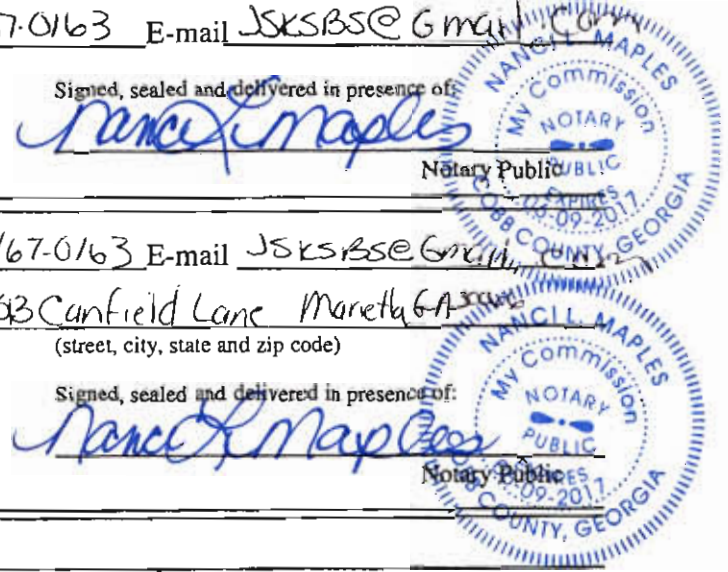 7-0163 E-mail JSKSBS@Gmail.Com
Signed, sealed and delivered in presence of:
Nanci L Maples
Notary Public
NANCI L. MAPLES
My Commission
NOTARY
PUBLIC
EXPIRES
05-09-2017
COBB COUNTY, GEORGIA
167-0163 E-mail JSKSBS@Gmail.com
Canfield Lane Marietta GA
(street, city, state and zip code)
Signed, sealed and delivered in presence of:
Nanci L Maples
Notary Public
NANCI L. MAPLES
My Commission
NOTARY
PUBLIC
09-2017
COUNTY, GEORGIA